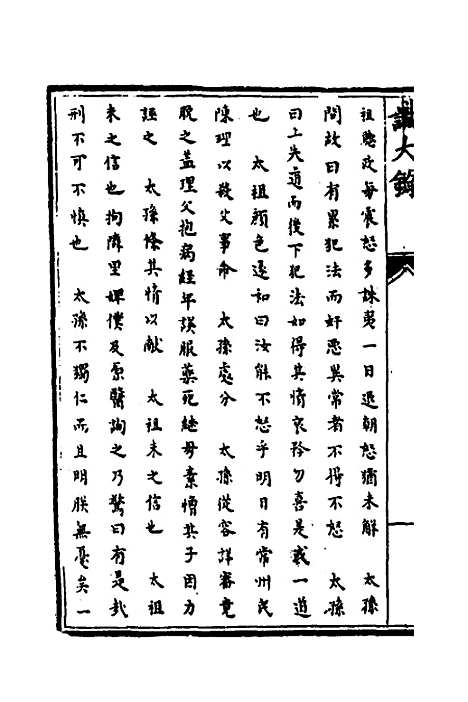 祖聽政每震怒多誅夷一日退朝怒猶未解　太孫
問故曰有累犯法而奸惡異常者不得不怒　太孫
曰上失道而後下犯法如得其情哀矜勿喜是或一道
也　太祖顏色遂和曰汝能不怒乎明日有常州民
陳理以殺父事命　太孫處分　太孫從容詳審竟
脫之蓋理父抱病經年誤服藥死繼母素憎其子因力
誣之　太孫條其情以献　太祖未之信也　太祖
未之信也拘隣里婢僕及原醫詢之乃驚曰有是哉
刑不可不慎也　太孫不獨仁而且明朕無憂矣一